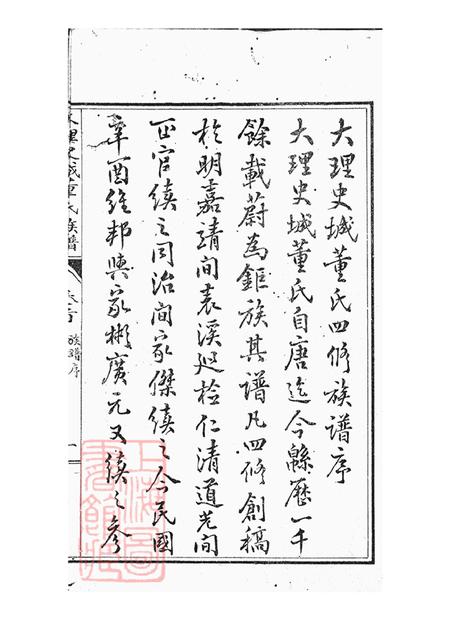 大理史城董氏四修族譜序
大理史城董氏自唐迄今緜歷一千
餘載蔚為鉅族其譜凡四修創稿
於明嘉靖間袁溪巡檢仁清道光間
正官續之同治間家傑續之今民國
辛酉維邦與家彬廣元又續之參
大理史城董氏族譜
卷首 族譜序
一
上海圖書館藏